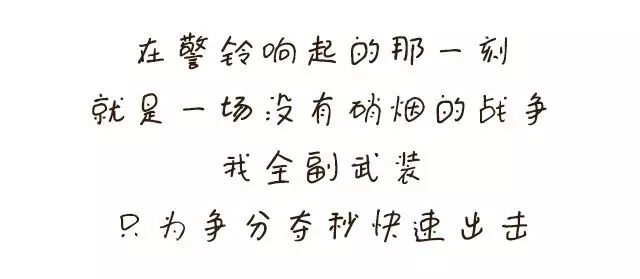 在警铃响起的那一刻
就是一场没有硝烟的战争
我全副武装
只为争分夺秒快速出击